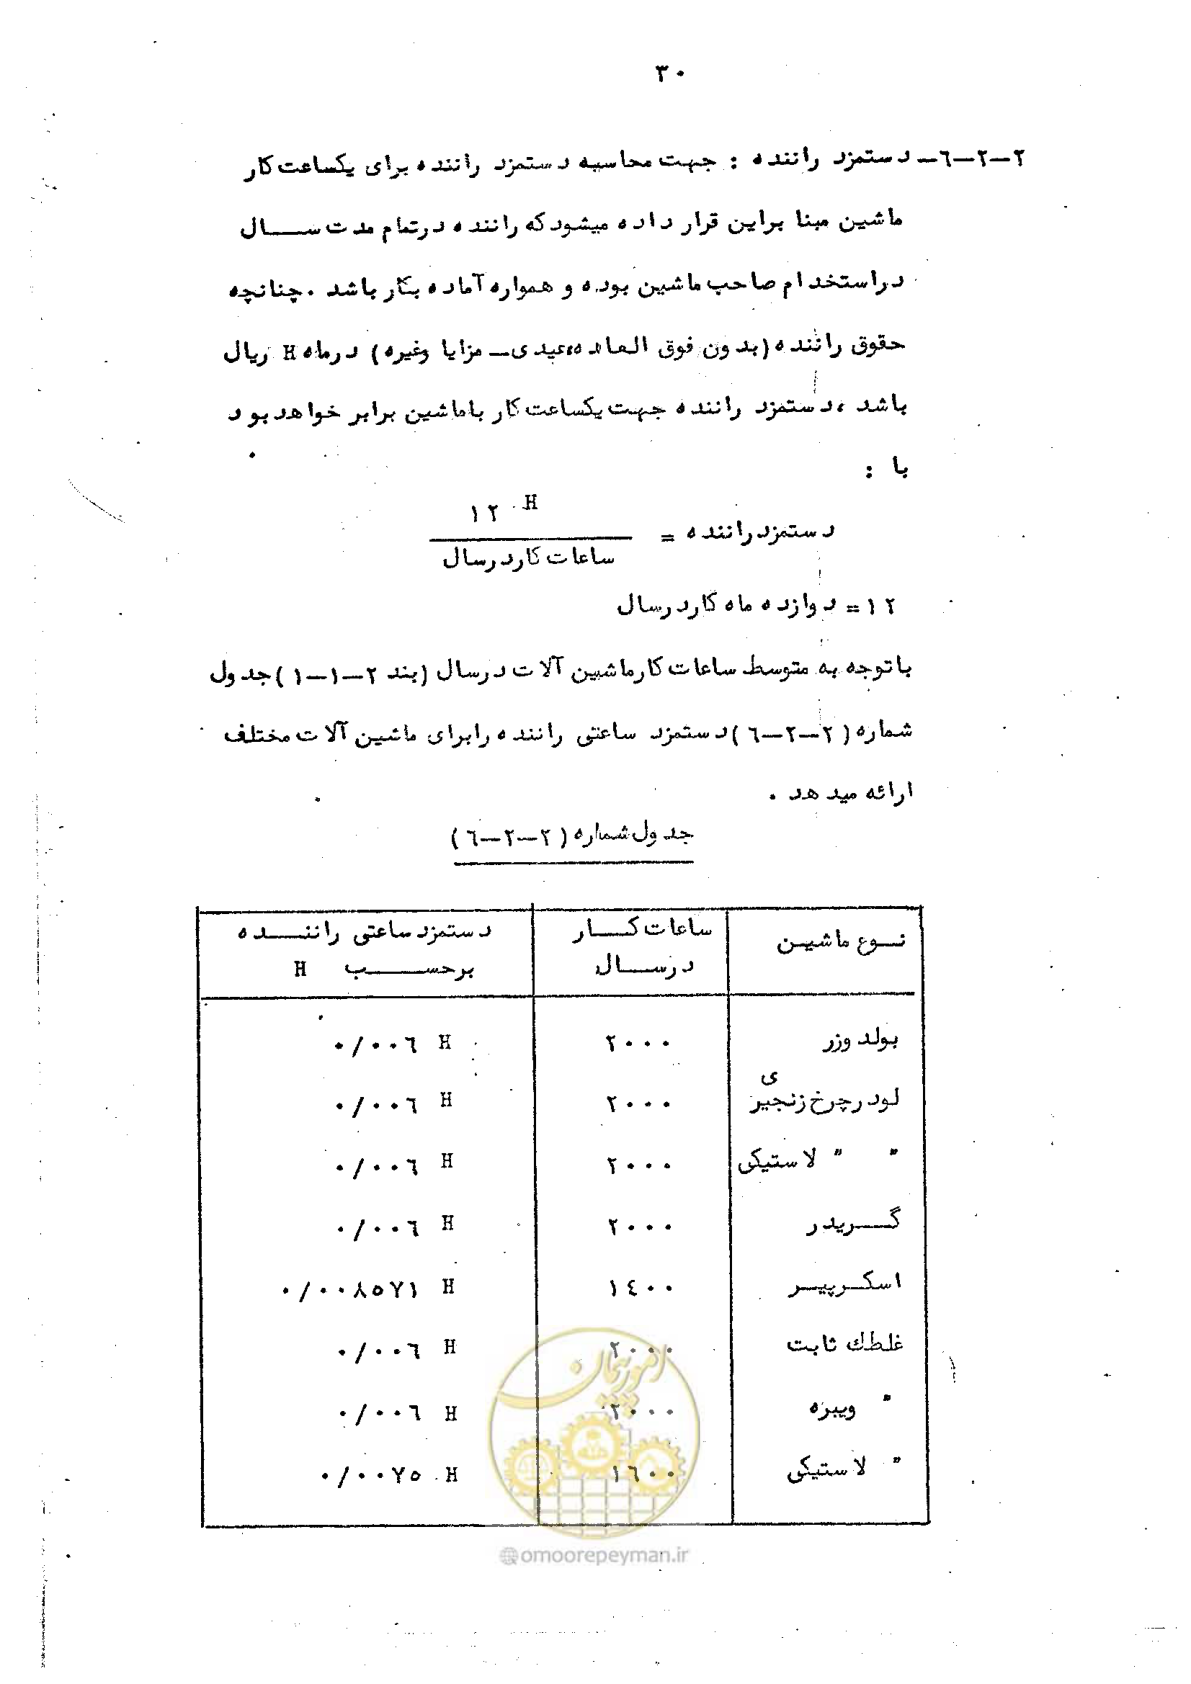 ۳۰
۲-۲-٦- دستمزد راننده : جهت محاسبه دستمزد راننده برای یکساعت کار
ماشین مبنا براین قرار داده میشود که راننده درتمام مدت ســـال
دراستخدام صاحب ماشین بوده و همواره آماده بکار باشد . چنانچه
حقوق راننده (بدون فوق العاده،عیدی- مزایا وغیره) درماه H ریال
باشد ،دستمزد راننده جهت یکساعت کار باماشین برابر خواهد بود
با :
دستمزد راننده = ۱۲ H
ساعات کار در سال
۱۲= دوازده ماه کار در سال
باتوجه به متوسط ساعات کار ماشین آلات در سال (بند ۲-۱-۱) جدول
شماره (۲-۲-٦) دستمزد ساعتی راننده را برای ماشین آلات مختلف
ارائه میدهد .
جدول شماره (۲-۲-٦)
نــوع ماشیــن | ساعات کـــار در ســـال | دستمزد ساعتی راننـــده برحســـب H
بولدوزر | ۲۰۰۰ | ۰/۰۰٦ H
لودر چرخ زنجیری | ۲۰۰۰ | ۰/۰۰٦ H
" " لاستیکی | ۲۰۰۰ | ۰/۰۰٦ H
گـــریدر | ۲۰۰۰ | ۰/۰۰٦ H
اسکـرپیــر | ۱٤۰۰ | ۰/۰۰۸۵۷۱ H
غلطك ثابت | ۲۰۰۰ | ۰/۰۰٦ H
" ویبره | ۲۰۰۰ | ۰/۰۰٦ H
" لاستیکی | ۱٦۰۰ | ۰/۰۰۷۵ H
امور پیمان
@omoorepeyman.ir